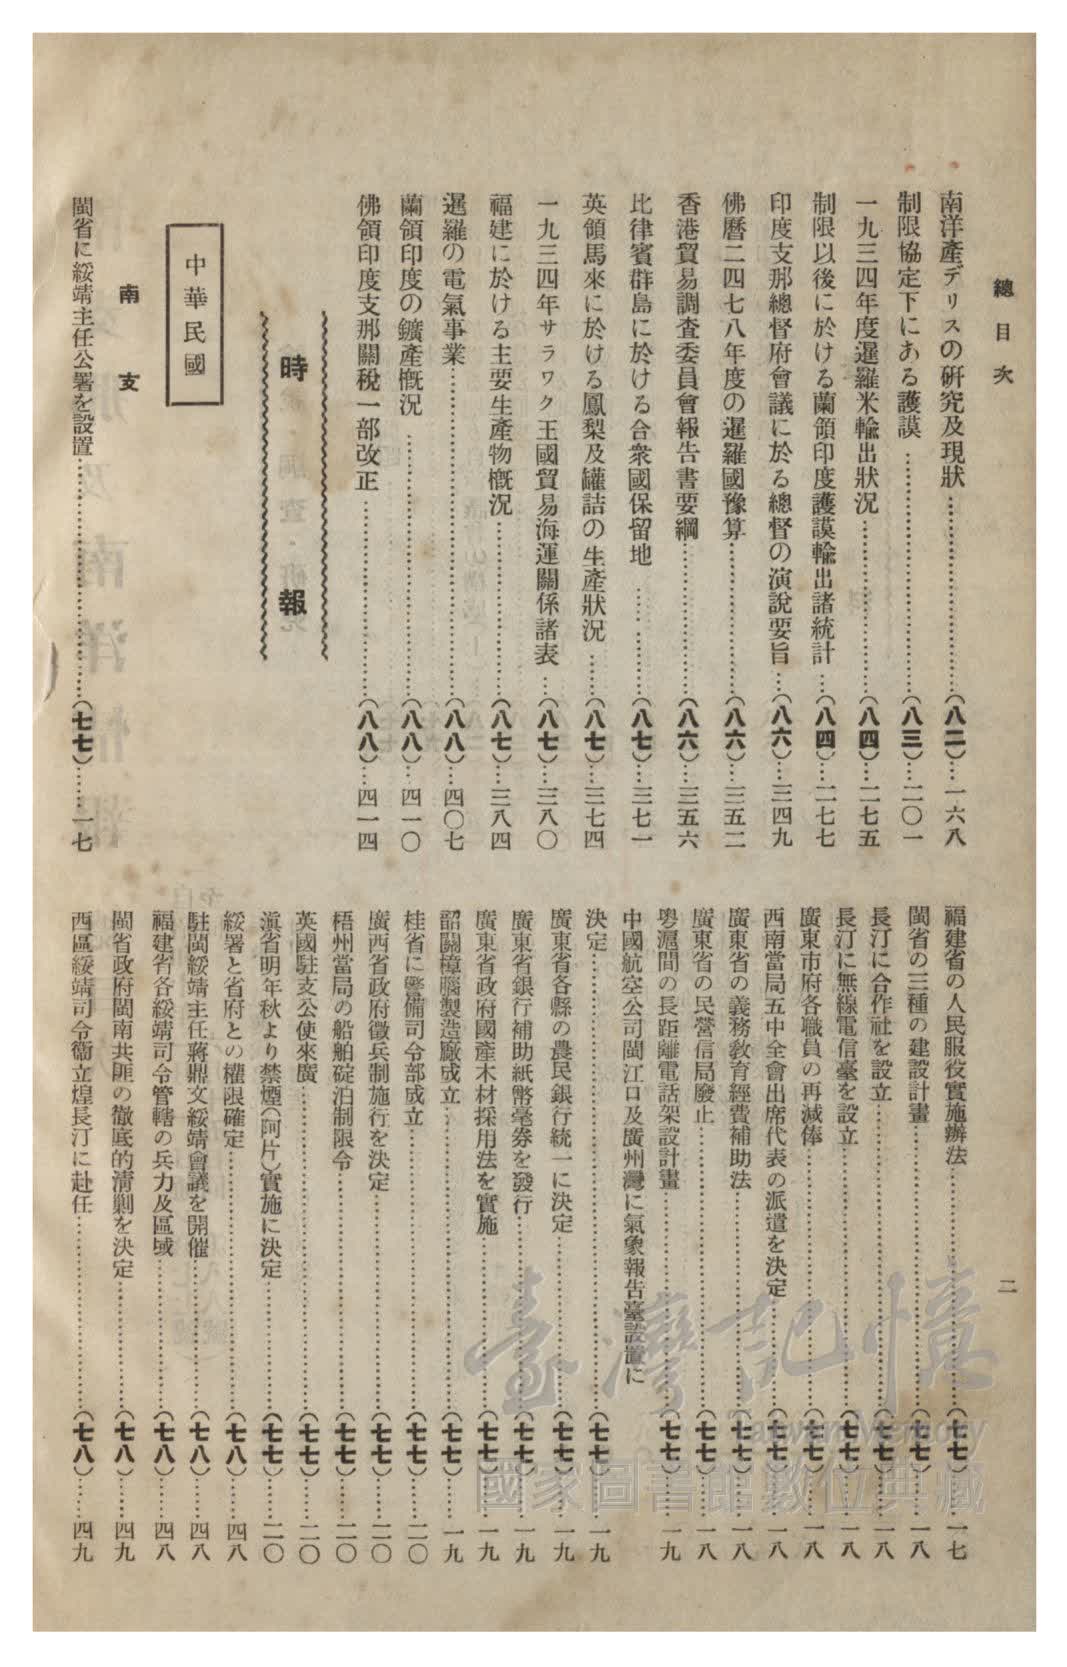 總目次
二
南洋產デリスの研究及現狀…………(八二)…一六八
制限協定下にある護謨…………(八三)…二〇一
一九三四年度暹羅米輸出狀況…………(八四)…二七五
制限以後に於ける蘭領印度護謨輸出諸統計…(八四)…二七七
印度支那總督府會議に於る總督の演說要旨…(八六)…三四九
佛曆二四七八年度の暹羅國豫算…………(八六)…三五二
香港貿易調查委員會報告書要綱…………(八六)…三五六
比律賓群島に於ける合衆國保留地…………(八七)…三七一
英領馬來に於ける鳳梨及罐詰の生產狀況……(八七)…三七四
一九三四年サラワク王國貿易海運關係諸表…(八七)…三八〇
福建に於ける主要生產物槪況…………(八七)…三八四
暹羅の電氣事業…………(八八)…四〇七
蘭領印度の鑛產槪況…………(八八)…四一〇
佛領印度支那關稅一部改正…………(八八)…四一四
時報
中華民國
南支
閩省に綏靖主任公署を設置…………(七七)……一七
福建省の人民服役實施辦法…………(七七)……一七
閩省の三種の建設計畫…………(七七)……一八
長汀に合作社を設立…………(七七)……一八
長汀に無線電信臺を設立…………(七七)……一八
廣東市府各職員の再減俸…………(七七)……一八
西南當局五中全會出席代表の派遣を決定…………(七七)……一八
廣東省の義務敎育經費補助法…………(七七)……一八
廣東省の民營信局廢止…………(七七)……一八
粤滬間の長距離電話架設計畫…………(七七)……一九
中國航空公司閩江口及廣州灣に氣象報告臺設置に
決定…………(七七)……一九
廣東省各縣の農民銀行統一に決定…………(七七)……一九
廣東省銀行補助紙幣毫券を發行…………(七七)……一九
廣東省政府國產木材採用法を實施…………(七七)……一九
韶關樟腦製造廠成立…………(七七)……一九
桂省に警備司令部成立…………(七七)……二〇
廣西省政府徵兵制施行を決定…………(七七)……二〇
梧州當局の船舶碇泊制限令…………(七七)……二〇
英國駐支公使來廣…………(七七)……二〇
滇省明年秋より禁煙(阿片)實施に決定…………(七七)……二〇
綏署と省府との權限確定…………(七八)……四八
駐閩綏靖主任蔣鼎文綏靖會議を開催…………(七八)……四八
福建省各綏靖司令管轄の兵力及區域…………(七八)……四八
閩省政府閩南共匪の徹底的淸剿を決定…………(七八)……四九
西區綏靖司令衞立煌長汀に赴任…………(七八)……四九
臺灣記憶
Taiwan Memory
國家圖書館數位典藏